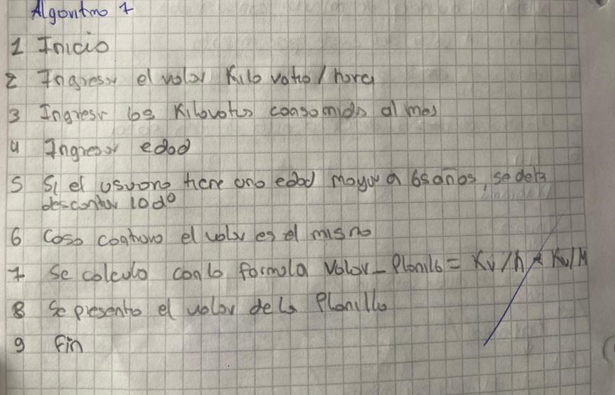 Algoritmo 1
1 Inicio
2 Ingresar el valor Kilo vatio/hora
3 Ingresar los Kilovatios consomidos al mes
4 Ingresar edad
5 Si el usuario tiene una edad mayor a 65 años, se debe
descontar 10 do
6 Caso contrario el valor es el mismo
7 Se calcula con la formula Valor_Planilla = Kv/h * Kv/M
8 Se presenta el valor de la Planilla
9 Fin